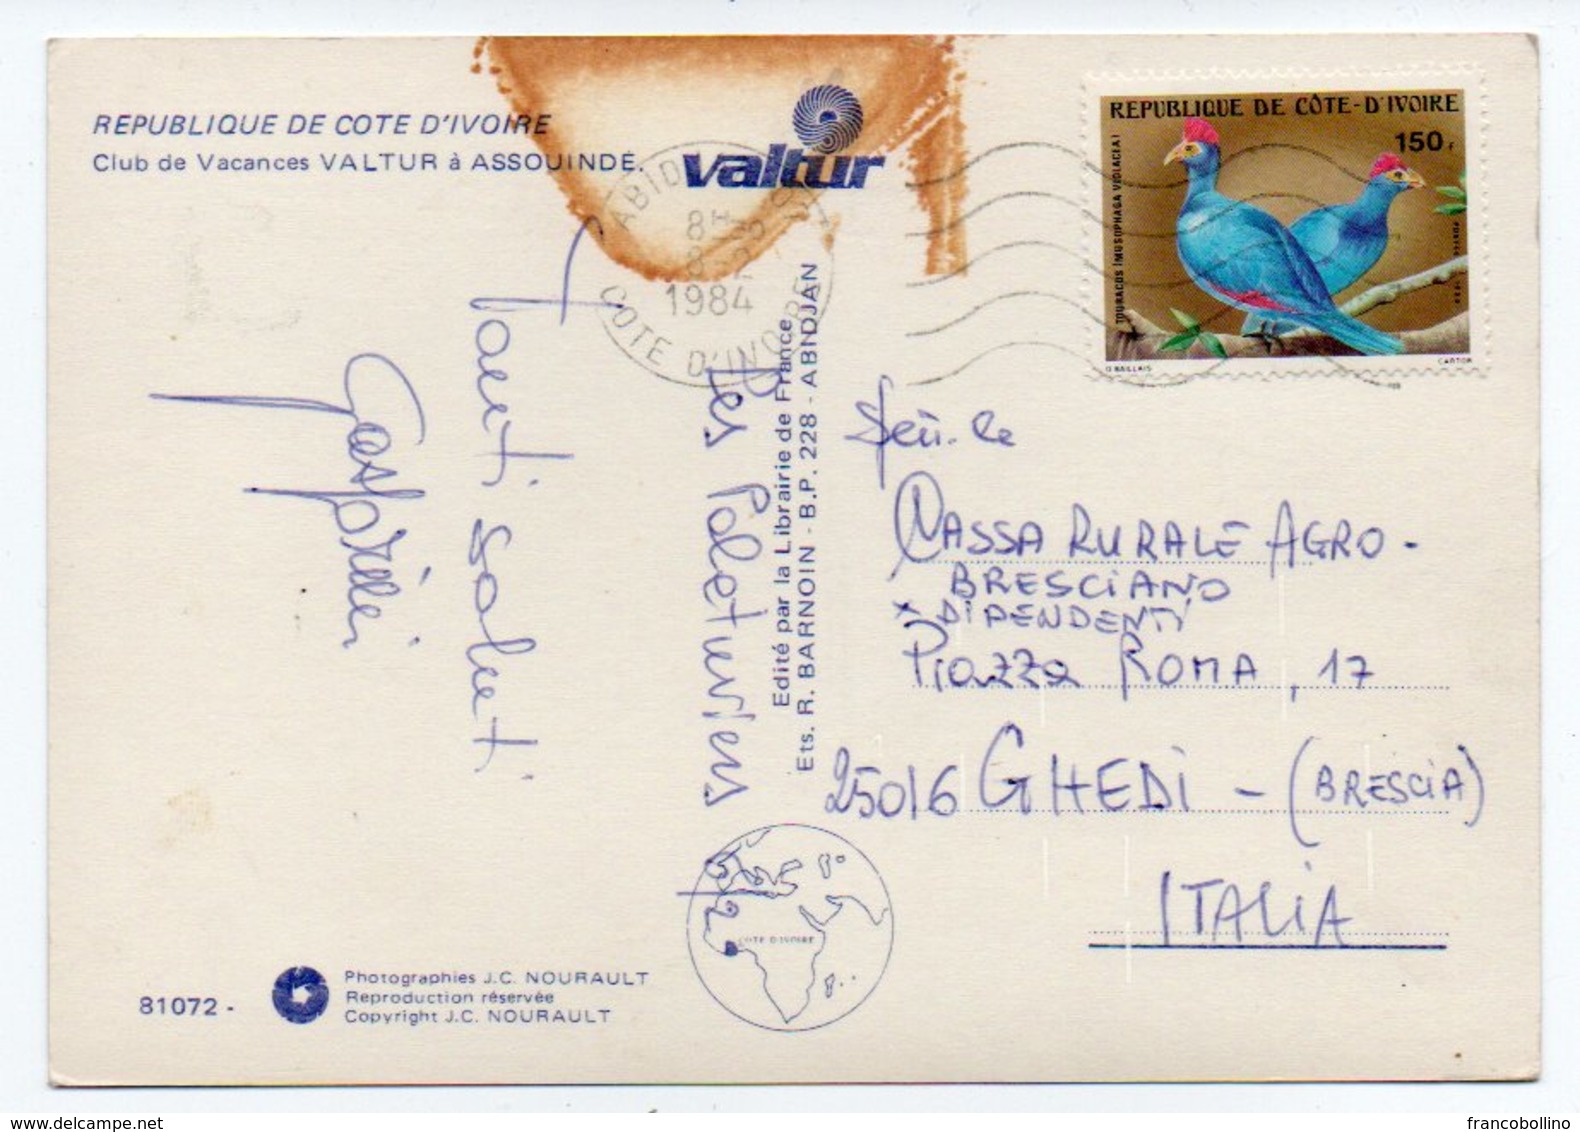 REPUBLIQUE DE COTE D'IVOIRE
Club de Vacances VALTUR à ASSOUINDÉ.
valtur
ABIDJAN
8H
8-2
1984
COTE D'IVOIRE
REPUBLIQUE DE CÔTE-D'IVOIRE
150F
TOURACOS (MUSOPHAGA VIOLACEA)
O BAILLAIS
CARTOR
Tanti saluti
Edité par la Librairie de France
Ets. R. BARNOIN - B.P. 228 - ABIDJAN
CASSA RURALE AGRO-
BRESCIANO
x DIPENDENTI
PIAZZA ROMA, 17
25016 GHEDI - (BRESCIA)
ITALIA
COTE D'IVOIRE
81072 -
Photographies J.C. NOURAULT
Reproduction réservée
Copyright J.C. NOURAULT
francobollino